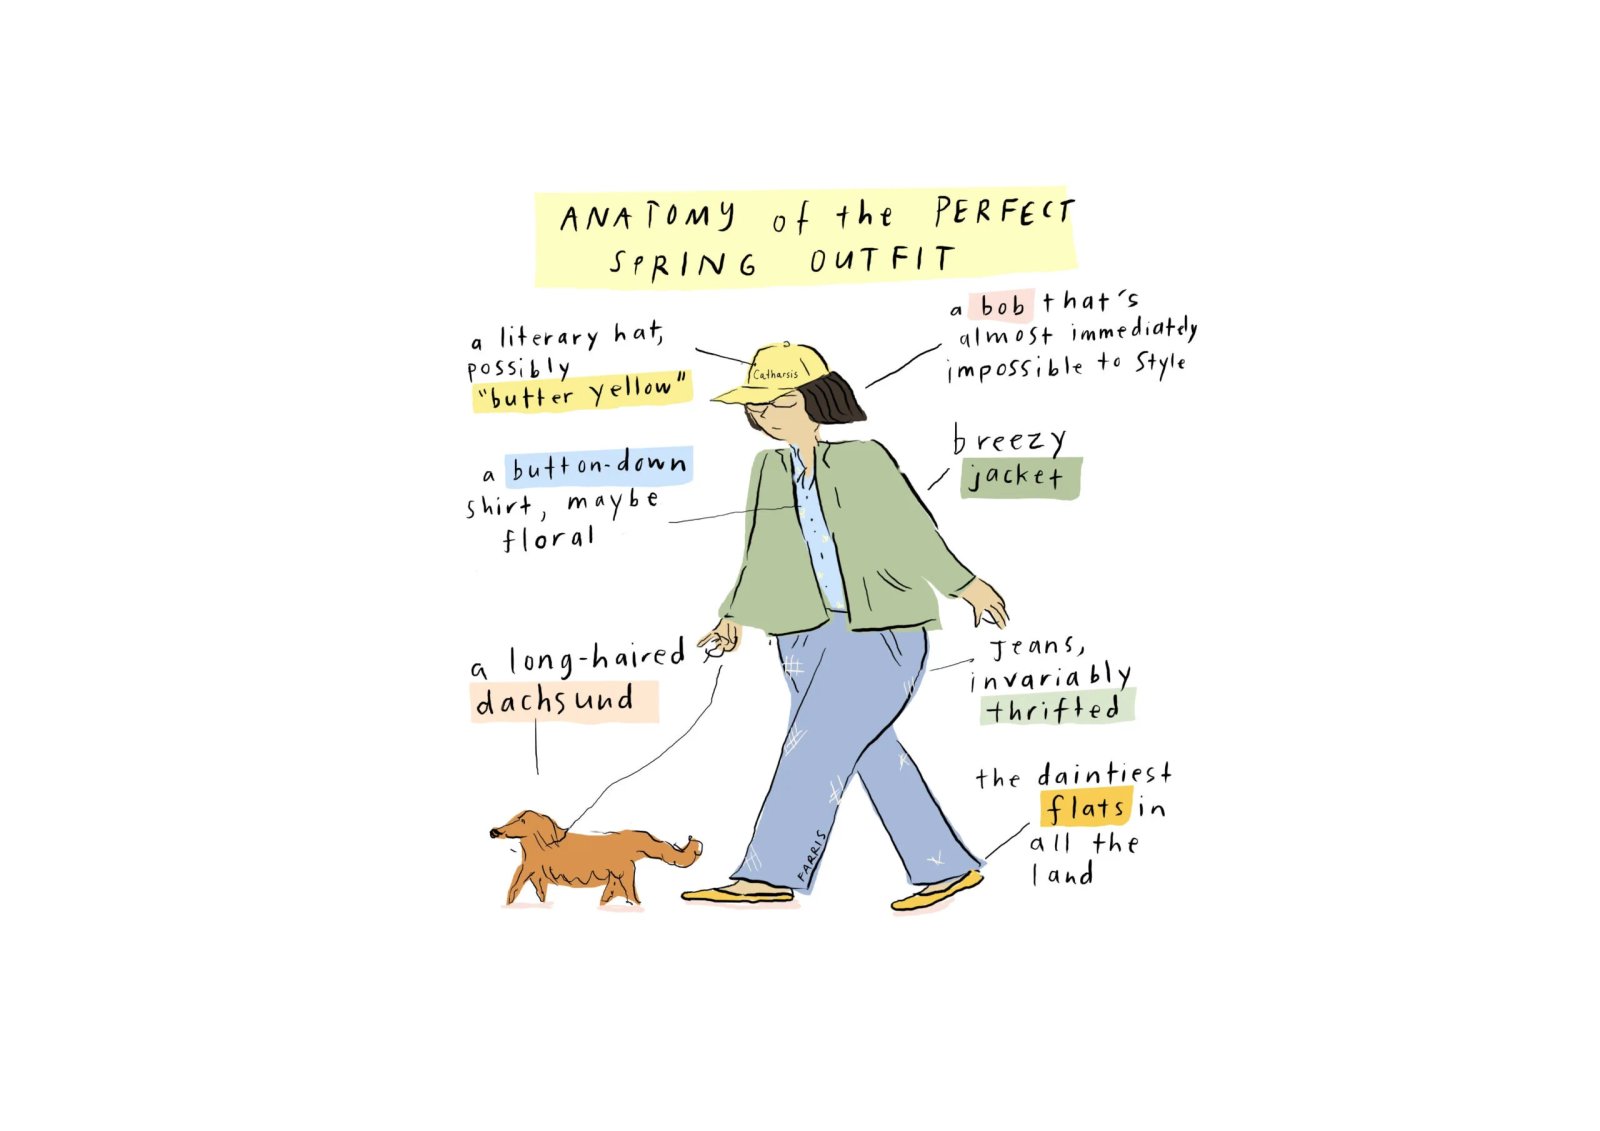 ANATOMY of the PERFECT
SPRING OUTFIT
a literary hat,
possibly
"butter yellow"
Catharsis
a bob that's
almost immediately
impossible to style
a button-down
shirt, maybe
floral
breezy
jacket
a long-haired
dachsund
Jeans,
invariably
thrifted
the daintiest
flats in
all the
land
FARRIS